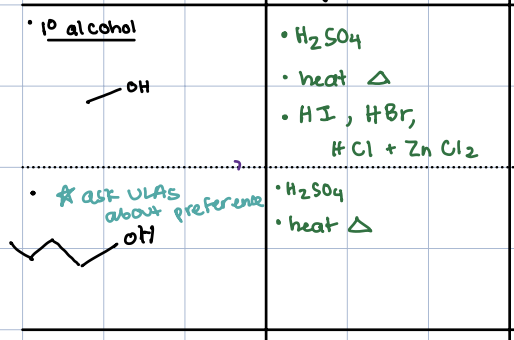 • 1° alcohol
OH
• H₂SO₄
• heat △
• HI, HBr,
HCl + ZnCl₂
• ☆ ask ULAs
about preference
OH
• H₂SO₄
• heat △